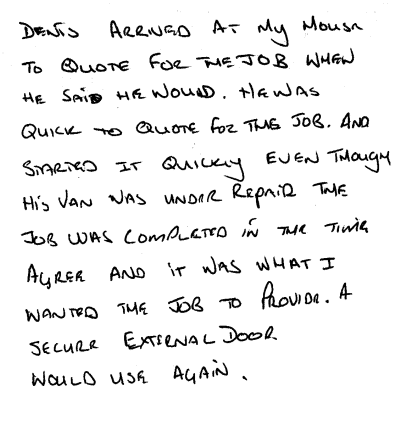 DENIS ARRIVED AT MY HOUSE
TO QUOTE FOR THE JOB WHEN
HE SAID HE WOULD. HE WAS
QUICK TO QUOTE FOR THE JOB. AND
STARTED IT QUICKLY EVEN THOUGH
HIS VAN WAS UNDER REPAIR THE
JOB WAS COMPLETED IN THE TIME
AGREE AND IT WAS WHAT I
WANTED THE JOB TO PROVIDE. A
SECURE EXTERNAL DOOR
WOULD USE AGAIN.